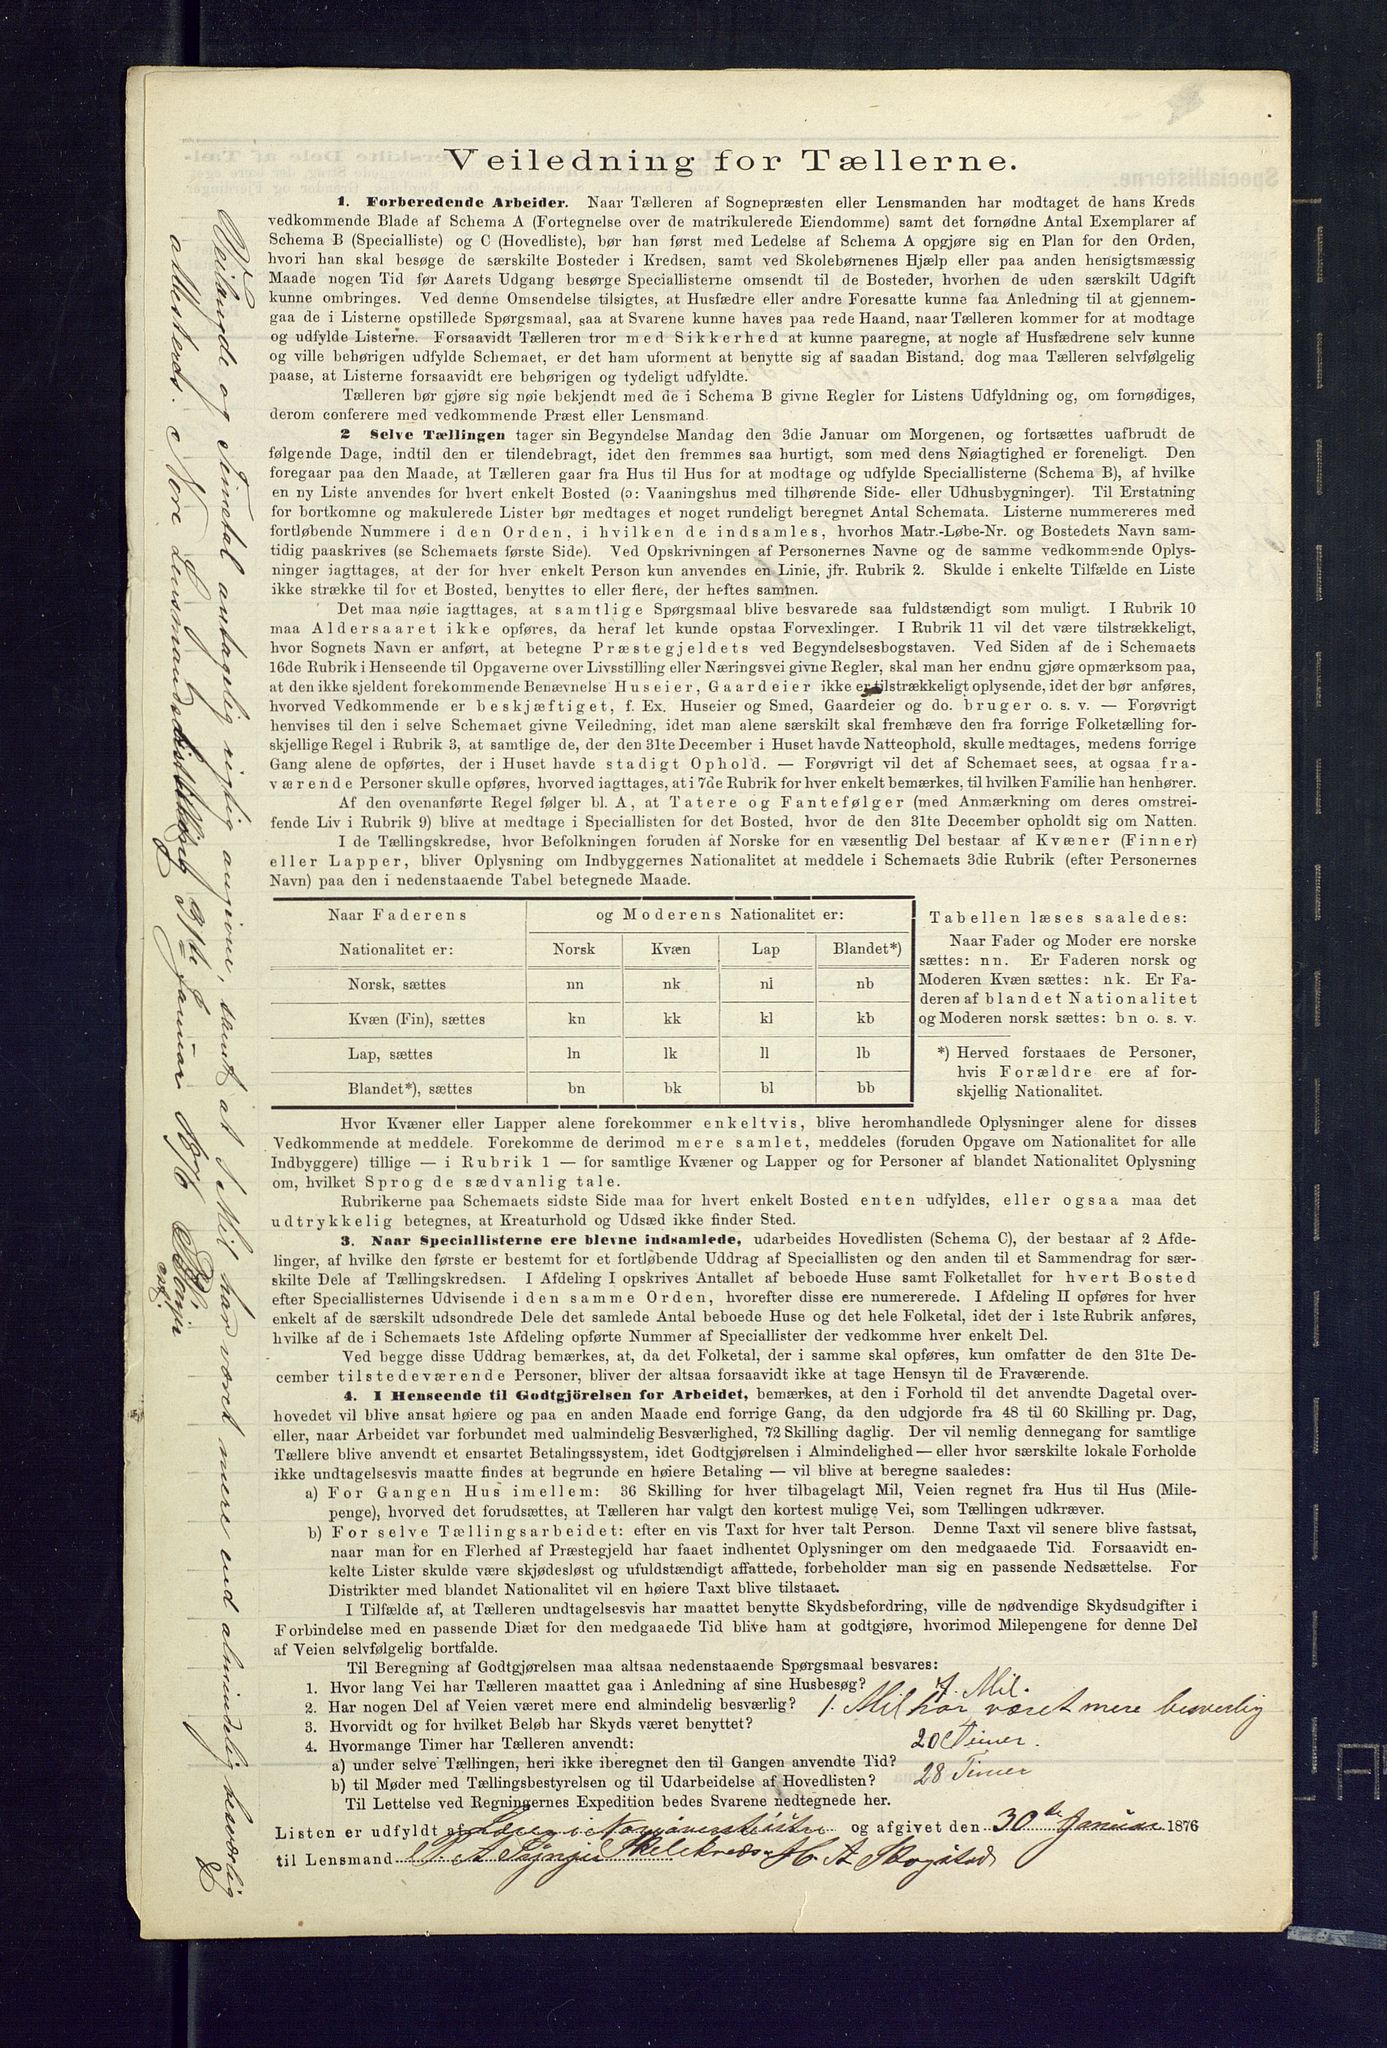 Veiledning for Tællerne.
1. Forberedende Arbeider. Naar Tælleren af Sognepræsten eller Lensmanden har modtaget de hans Kreds
vedkommende Blade af Schema A (Fortegnelse over de matrikulerede Eiendomme) samt det fornødne Antal Exemplarer af
Schema B (Specialliste) og C (Hovedliste), bør han først med Ledelse af Schema A opgjøre sig en Plan for den Orden,
hvori han skal besøge de særskilte Bosteder i Kredsen, samt ved Skolebørnenes Hjælp eller paa anden hensigtsmæssig
Maade nogen Tid før Aarets Udgang besørge Speciallisterne omsendt til de Bosteder, hvorhen de uden særskilt Udgift
kunne ombringes. Ved denne Omsendelse tilsigtes, at Husfædre eller andre Foresatte kunne faa Anledning til at gjennem-
gaa de i Listerne opstillede Spørgsmaal, saa at Svarene kunne haves paa rede Haand, naar Tælleren kommer for at modtage
og udfylde Listerne. Forsaavidt Tælleren tror med Sikkerhed at kunne paaregne, at nogle af Husfædrene selv kunne
og ville behørigen udfylde Schemaet, er det ham uforment at benytte sig af saadan Bistand, dog maa Tælleren selvfølgelig
paase, at Listerne forsaavidt ere behørigen og tydeligt udfyldte.
Tælleren bør gjøre sig nøie bekjendt med de i Schema B givne Regler for Listens Udfyldning og, om fornødiges,
derom conferere med vedkommende Præst eller Lensmand.
2 Selve Tællingen tager sin Begyndelse Mandag den 3die Januar om Morgenen, og fortsættes uafbrudt de
følgende Dage, indtil den er tilendebragt, idet den fremmes saa hurtigt, som med dens Nøiagtighed er foreneligt. Den
foregaar paa den Maade, at Tælleren gaar fra Hus til Hus for at modtage og udfylde Speciallisterne (Schema B), af hvilke
en ny Liste anvendes for hvert enkelt Bosted (ɔ: Vaaningshus med tilhørende Side- eller Udhusbygninger). Til Erstatning
for bortkomne og makulerede Lister bør medtages et noget rundeligt beregnet Antal Schemata. Listerne nummereres med
fortløbende Nummere i den Orden, i hvilken de indsamles, hvorhos Matr.-Løbe-Nr. og Bostedets Navn sam-
tidig paaskrives (se Schemaets første Side). Ved Opskrivningen af Personernes Navne og de samme vedkommende Oplys-
ninger iagttages, at der for hver enkelt Person kun anvendes en Linie, jfr. Rubrik 2. Skulde i enkelte Tilfælde en Liste
ikke strække til for et Bosted, benyttes to eller flere, der heftes sammen.
Det maa nøie iagttages, at samtlige Spørgsmaal blive besvarede saa fuldstændigt som muligt. I Rubrik 10
maa Aldersaaret ikke opføres, da heraf let kunde opstaa Forvexlinger. I Rubrik 11 vil det være tilstrækkeligt,
hvor Sognets Navn er anført, at betegne Præstegjeldets ved Begyndelsesbogstaven. Ved Siden af de i Schemaets
16de Rubrik i Henseende til Opgaverne over Livsstilling eller Næringsvei givne Regler, skal man her endnu gjøre opmærksom paa,
at den ikke sjeldent forekommende Benævnelse Huseier, Gaardeier ikke er tilstrækkeligt oplysende, idet der bør anføres,
hvorved Vedkommende er beskjæftiget, f. Ex. Huseier og Smed, Gaardeier og do. bruger o. s. v. — Forøvrigt
henvises til den i selve Schemaet givne Veiledning, idet man alene særskilt skal fremhæve den fra forrige Folketælling for-
skjellige Regel i Rubrik 3, at samtlige de, der den 31te December i Huset havde Natteophold, skulle medtages, medens forrige
Gang alene de opførtes, der i Huset havde stadigt Ophold. — Forøvrigt vil det af Schemaet sees, at ogsaa fra-
værende Personer skulle opføres, hvorved iagttages, at i 7de Rubrik for hver enkelt bemærkes, til hvilken Familie han henhører.
Af den ovenanførte Regel følger bl. A, at Tatere og Fantefølger (med Anmærkning om deres omstrei-
fende Liv i Rubrik 9) blive at medtage i Speciallisten for det Bosted, hvor de den 31te December opholdt sig om Natten.
I de Tællingskredse, hvor Befolkningen foruden af Norske for en væsentlig Del bestaar af Kvæner (Finner)
eller Lapper, bliver Oplysning om Indbyggernes Nationalitet at meddele i Schemaets 3die Rubrik (efter Personernes
Navn) paa den i nedenstaaende Tabel betegnede Maade.
Naar Faderens og Moderens Nationalitet er:
Nationalitet er: Norsk Kvæn Lap Blandet*)
Norsk, sættes nn nk nl nb
Kvæn (Fin), sættes kn kk kl kb
Lap, sættes ln lk ll lb
Blandet*), sættes bn bk bl bb
Tabellen læses saaledes:
Naar Fader og Moder ere norske
sættes: nn. Er Faderen norsk og
Moderen Kvæn sættes: nk. Er Fa-
deren af blandet Nationalitet
og Moderen norsk sættes: bn o. s. v.
*) Herved forstaaes de Personer,
hvis Forældre ere af for-
skjellig Nationalitet.
Hvor Kvæner eller Lapper alene forekommer enkeltvis, blive heromhandlede Oplysninger alene for disses
Vedkommende at meddele. Forekomme de derimod mere samlet, meddeles (foruden Opgave om Nationalitet for alle
Indbyggere) tillige — i Rubrik 1 — for samtlige Kvæner og Lapper og for Personer af blandet Nationalitet Oplysning
om, hvilket Sprog de sædvanlig tale.
Rubrikerne paa Schemaets sidste Side maa for hvert enkelt Bosted enten udfyldes, eller ogsaa maa det
udtrykkelig betegnes, at Kreaturhold og Udsæd ikke finder Sted.
3. Naar Speciallisterne ere blevne indsamlede, udarbeides Hovedlisten (Schema C), der bestaar af 2 Afde-
linger, af hvilke den første er bestemt for et fortløbende Uddrag af Speciallisten og den anden til et Sammendrag for sær-
skilte Dele af Tællingskredsen. I Afdeling I opskrives Antallet af beboede Huse samt Folketallet for hvert Bosted
efter Speciallisternes Udvisende i den samme Orden, hvorefter disse ere numererede. I Afdeling II opføres for hver
enkelt af de særskilt udsondrede Dele det samlede Antal beboede Huse og det hele Folketal, idet der i 1ste Rubrik anføres,
hvilke af de i Schemaets 1ste Afdeling opførte Nummer af Speciallister der vedkomme hver enkelt Del.
Ved begge disse Uddrag bemærkes, at, da det Folketal, der i samme skal opføres, kun omfatter de den 31te De-
cember tilstedeværende Personer, bliver der altsaa forsaavidt ikke at tage Hensyn til de Fraværende.
4. I Henseende til Godtgjörelsen for Arbeidet, bemærkes, at den i Forhold til det anvendte Dagetal over-
hovedet vil blive ansat høiere og paa en anden Maade end forrige Gang, da den udgjorde fra 48 til 60 Skilling pr. Dag,
eller, naar Arbeidet var forbundet med ualmindelig Besværlighed, 72 Skilling daglig. Der vil nemlig dennegang for samtlige
Tællere blive anvendt et ensartet Betalingssystem, idet Godtgjørelsen i Almindelighed — eller hvor særskilte lokale Forholde
ikke undtagelsesvis maatte findes at begrunde en høiere Betaling — vil blive at beregne saaledes:
a) For Gangen Hus imellem: 36 Skilling for hver tilbagelagt Mil, Veien regnet fra Hus til Hus (Mile-
penge), hvorved det forudsættes, at Tælleren har valgt den kortest mulige Vei, som Tællingen udkræver.
b) For selve Tællingsarbeidet: efter en vis Taxt for hver talt Person. Denne Taxt vil senere blive fastsat,
naar man for en Flerhed af Præstegjeld har faaet indhentet Oplysninger om den medgaaede Tid. Forsaavidt en-
kelte Lister skulde være skjødesløst og ufuldstændigt affattede, forbeholder man sig en passende Nedsættelse. For
Distrikter med blandet Nationalitet vil en høiere Taxt blive tilstaaet.
I Tilfælde af, at Tælleren undtagelsesvis har maattet benytte Skydsbefordring, ville de nødvendige Skydsudgifter i
Forbindelse med en passende Diæt for den medgaaede Tid blive ham at godtgjøre, hvorimod Milepengene for denne Del
af Veien selvfølgelig bortfalde.
Til Beregning af Godtgjørelsen maa altsaa nedenstaaende Spørgsmaal besvares:
1. Hvor lang Vei har Tælleren maattet gaa i Anledning af sine Husbesøg? Mil.
2. Har nogen Del af Veien været mere end almindelig besværlig? 1. Mil har været mere besverlig
3. Hvorvidt og for hvilket Beløb har Skyds været benyttet?
4. Hvormange Timer har Tælleren anvendt:
a) under selve Tællingen, heri ikke iberegnet den til Gangen anvendte Tid? 20 Timer.
b) til Møder med Tællingsbestyrelsen og til Udarbeidelse af Hovedlisten? 28 Timer
Til Lettelse ved Regningernes Expedition bedes Svarene nedtegnede her.
Listen er udfyldt af og afgivet den 30de Januar 1876
til Lensmand H. A.
Veilængde og Timetal antagelig rigtig angivne, samt at 1 Mil har været mere end almindelig besværlig
attesteres. Nore Lensmandsbestilling 31te Januar 1876